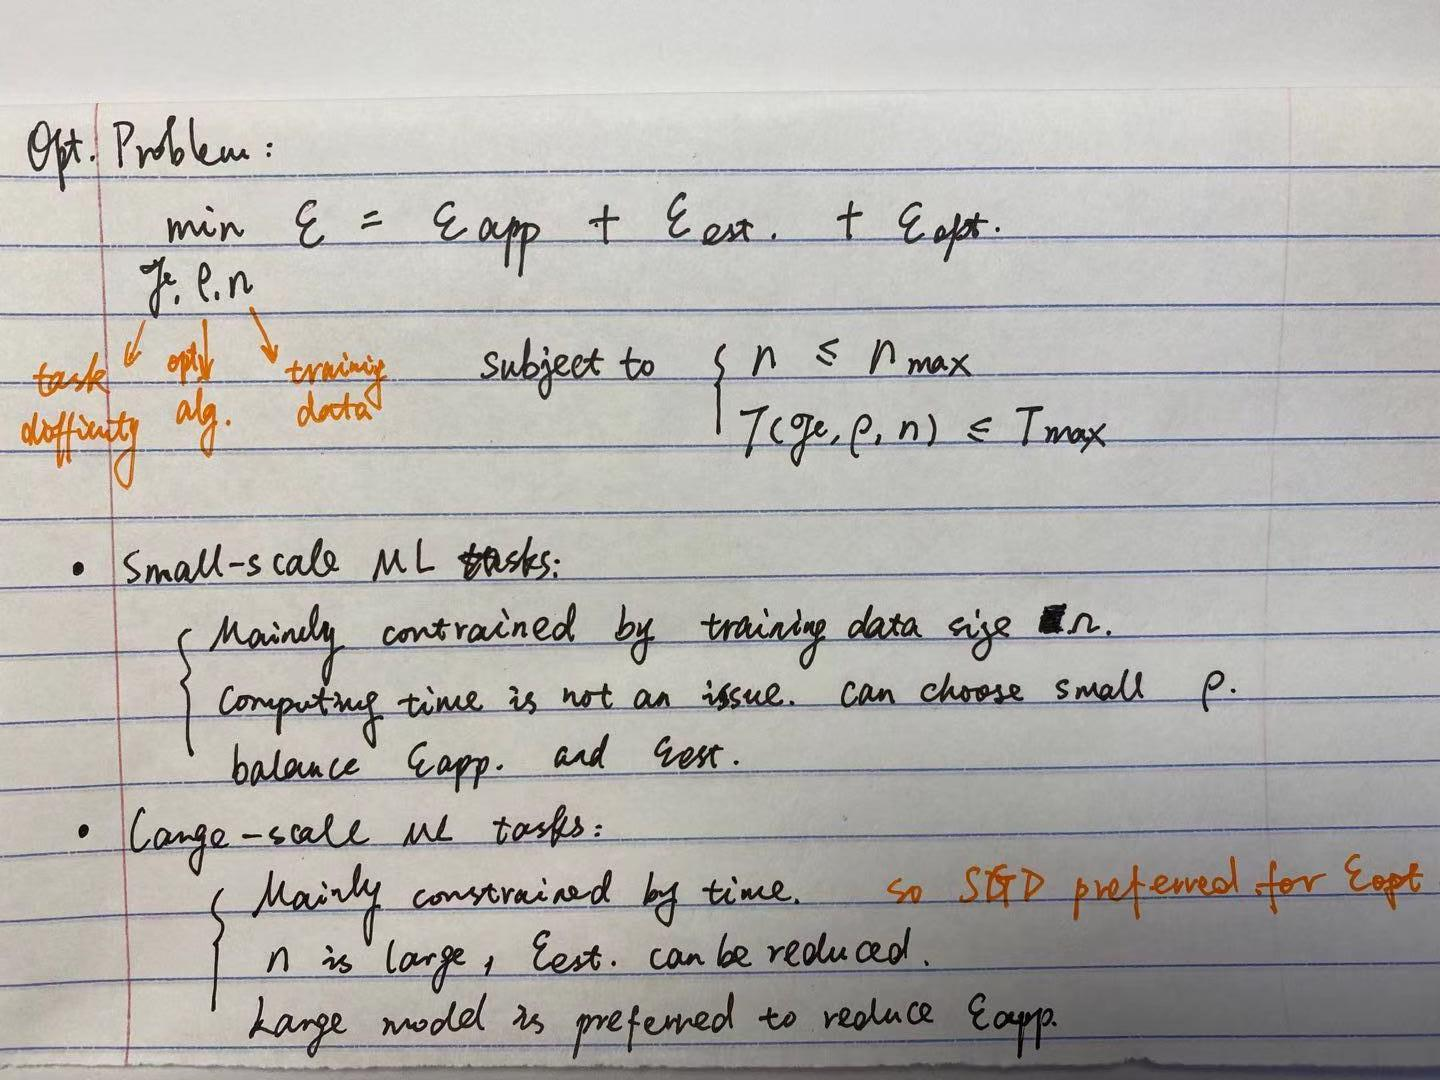 Opt. Problem:
min ℰ = ℰapp + ℰest. + ℰopt.
ℋ, ρ, n
task difficulty
opt alg.
training data
subject to { n ≤ nmax
T(ℋ, ρ, n) ≤ Tmax
• Small-scale ML tasks:
{ Mainly contrained by training data size n.
Computing time is not an issue. Can choose small ρ.
balance ℰapp. and ℰest.
• Large-scale ML tasks:
{ Mainly constrained by time. so SGD preferred for ℰopt
n is large, ℰest. can be reduced.
Large model is preferred to reduce ℰapp.